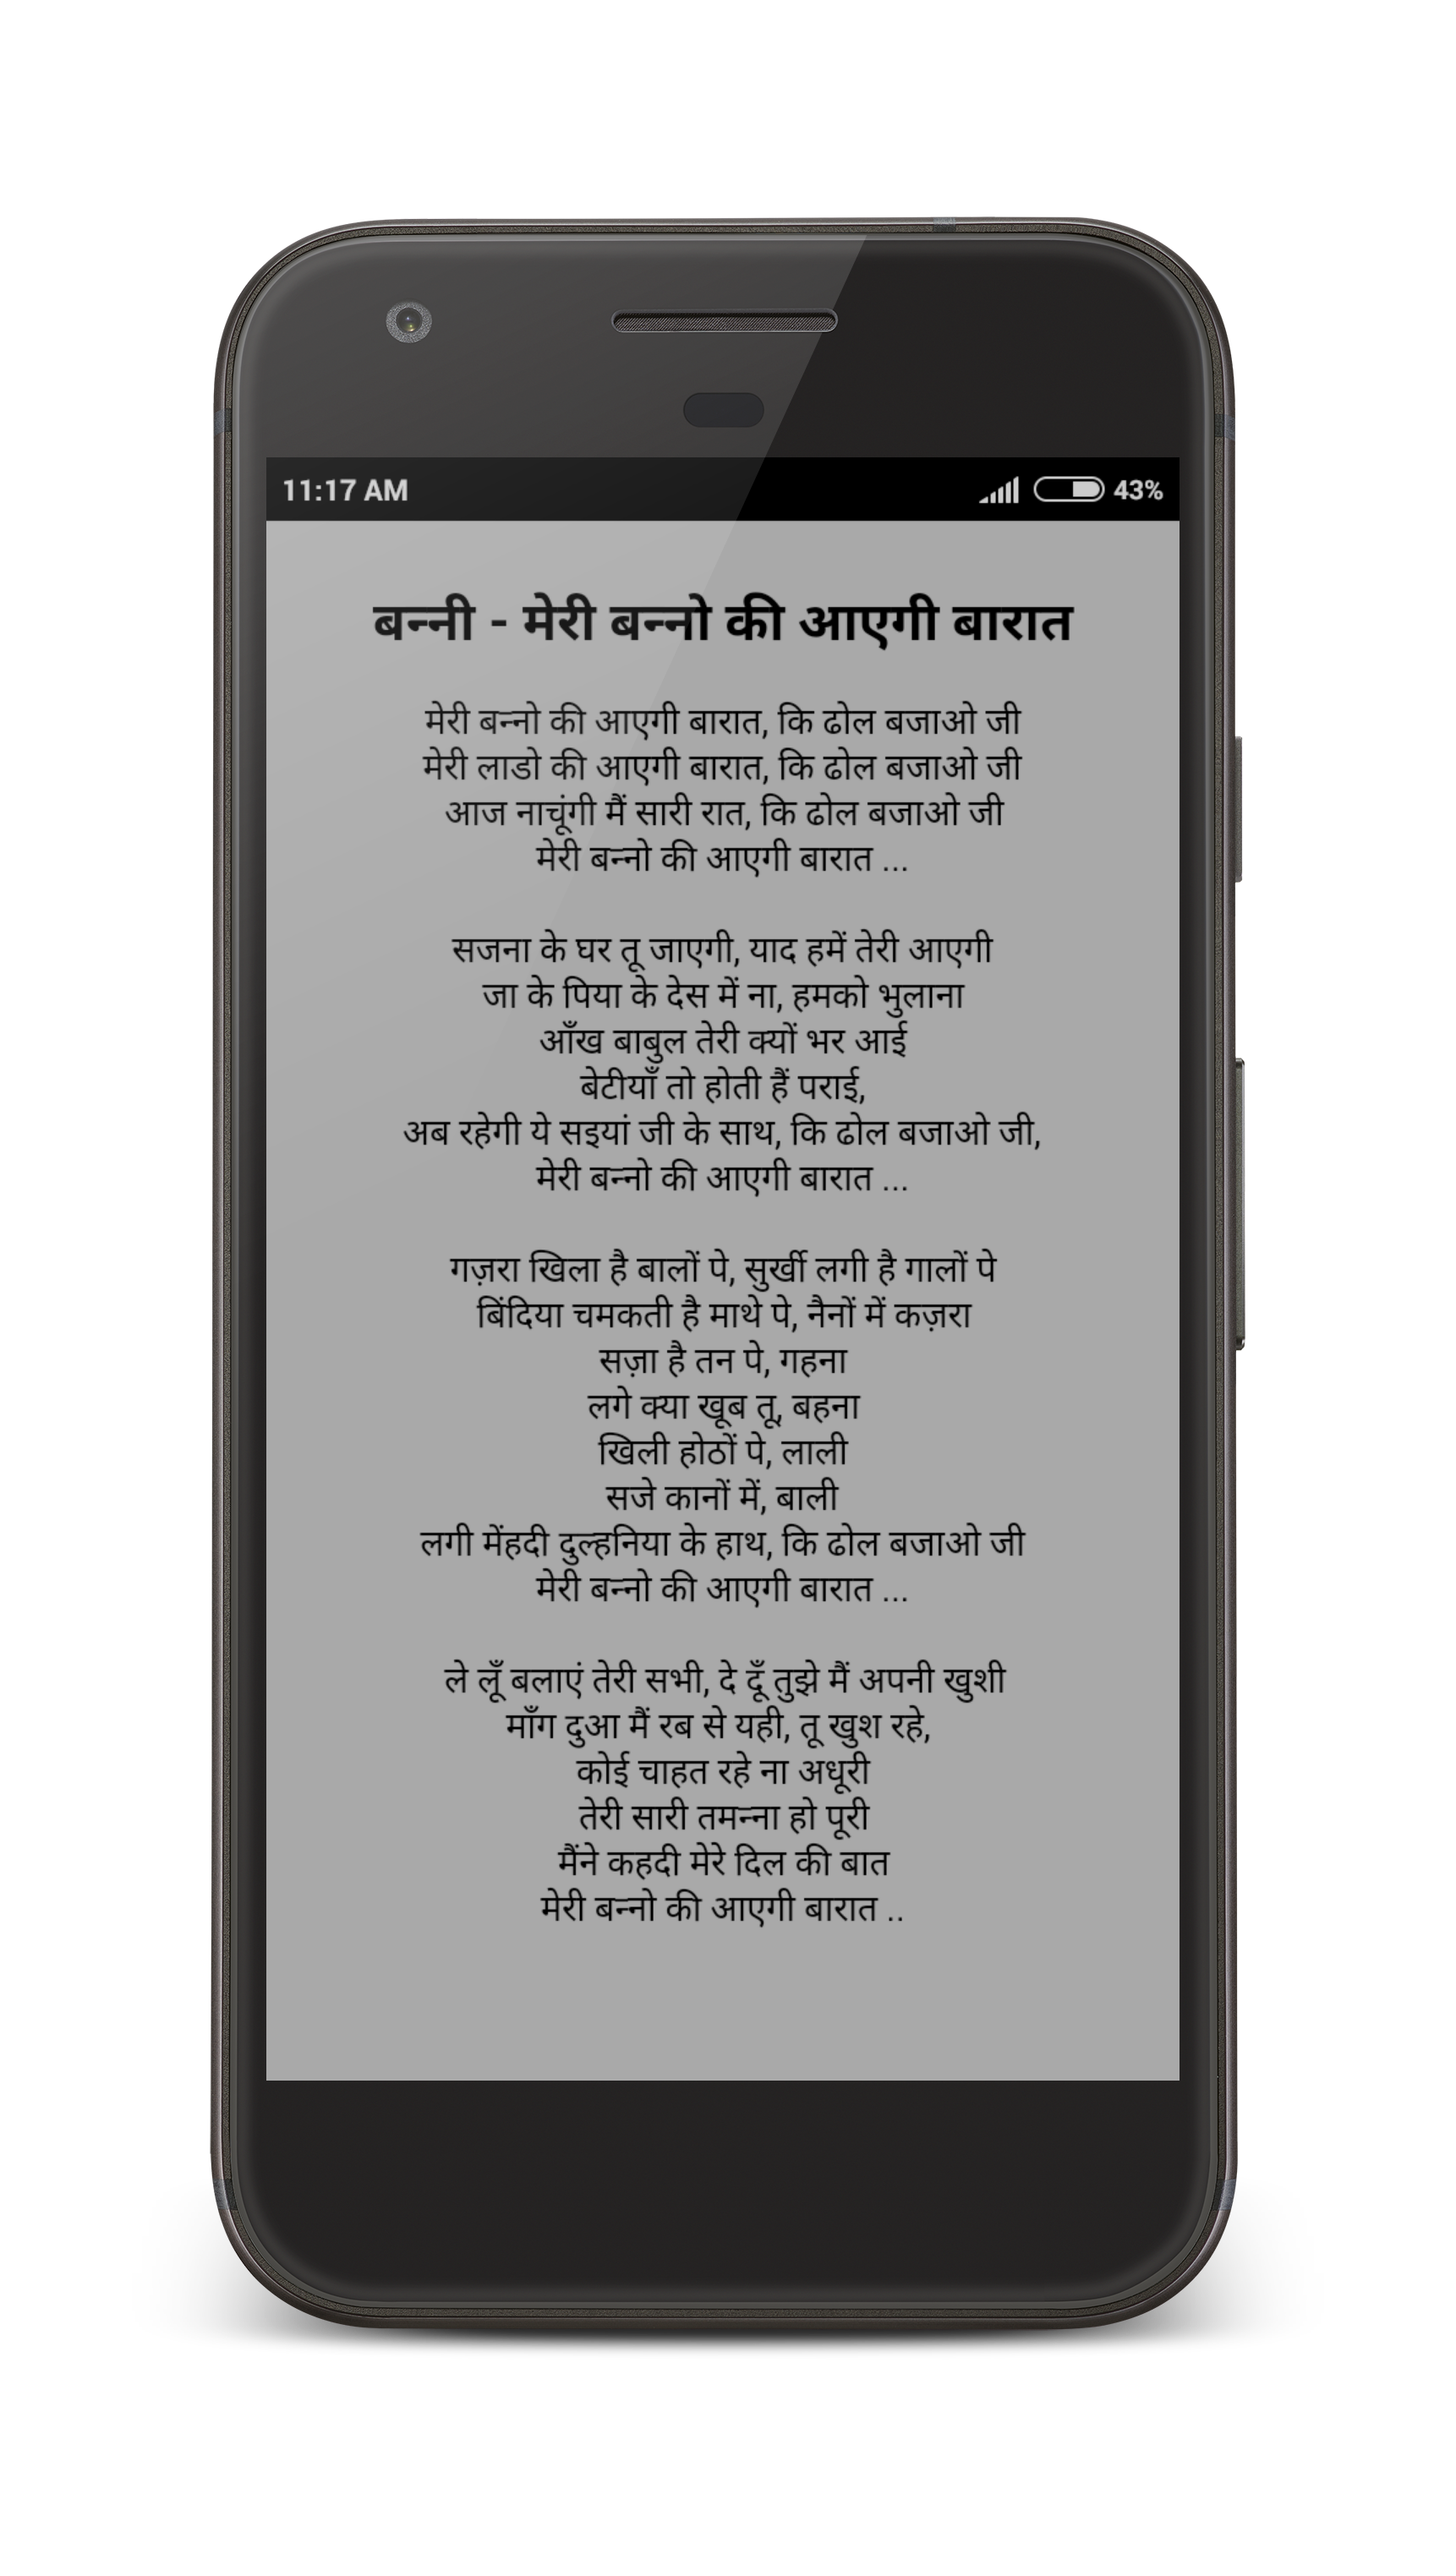 11:17 AM 43%
बन्नी - मेरी बन्नो की आएगी बारात
मेरी बन्नो की आएगी बारात, कि ढोल बजाओ जी
मेरी लाडो की आएगी बारात, कि ढोल बजाओ जी
आज नाचूंगी मैं सारी रात, कि ढोल बजाओ जी
मेरी बन्नो की आएगी बारात ...
सजना के घर तू जाएगी, याद हमें तेरी आएगी
जा के पिया के देस में ना, हमको भुलाना
आँख बाबुल तेरी क्यों भर आई
बेटीयाँ तो होती हैं पराई,
अब रहेगी ये सइयां जी के साथ, कि ढोल बजाओ जी,
मेरी बन्नो की आएगी बारात ...
गज़रा खिला है बालों पे, सुर्खी लगी है गालों पे
बिंदिया चमकती है माथे पे, नैनों में कज़रा
सज़ा है तन पे, गहना
लगे क्या खूब तू, बहना
खिली होठों पे, लाली
सजे कानों में, बाली
लगी मेंहदी दुल्हनिया के हाथ, कि ढोल बजाओ जी
मेरी बन्नो की आएगी बारात ...
ले लूँ बलाएं तेरी सभी, दे दूँ तुझे मैं अपनी खुशी
माँग दुआ मैं रब से यही, तू खुश रहे,
कोई चाहत रहे ना अधूरी
तेरी सारी तमन्ना हो पूरी
मैंने कहदी मेरे दिल की बात
मेरी बन्नो की आएगी बारात ..